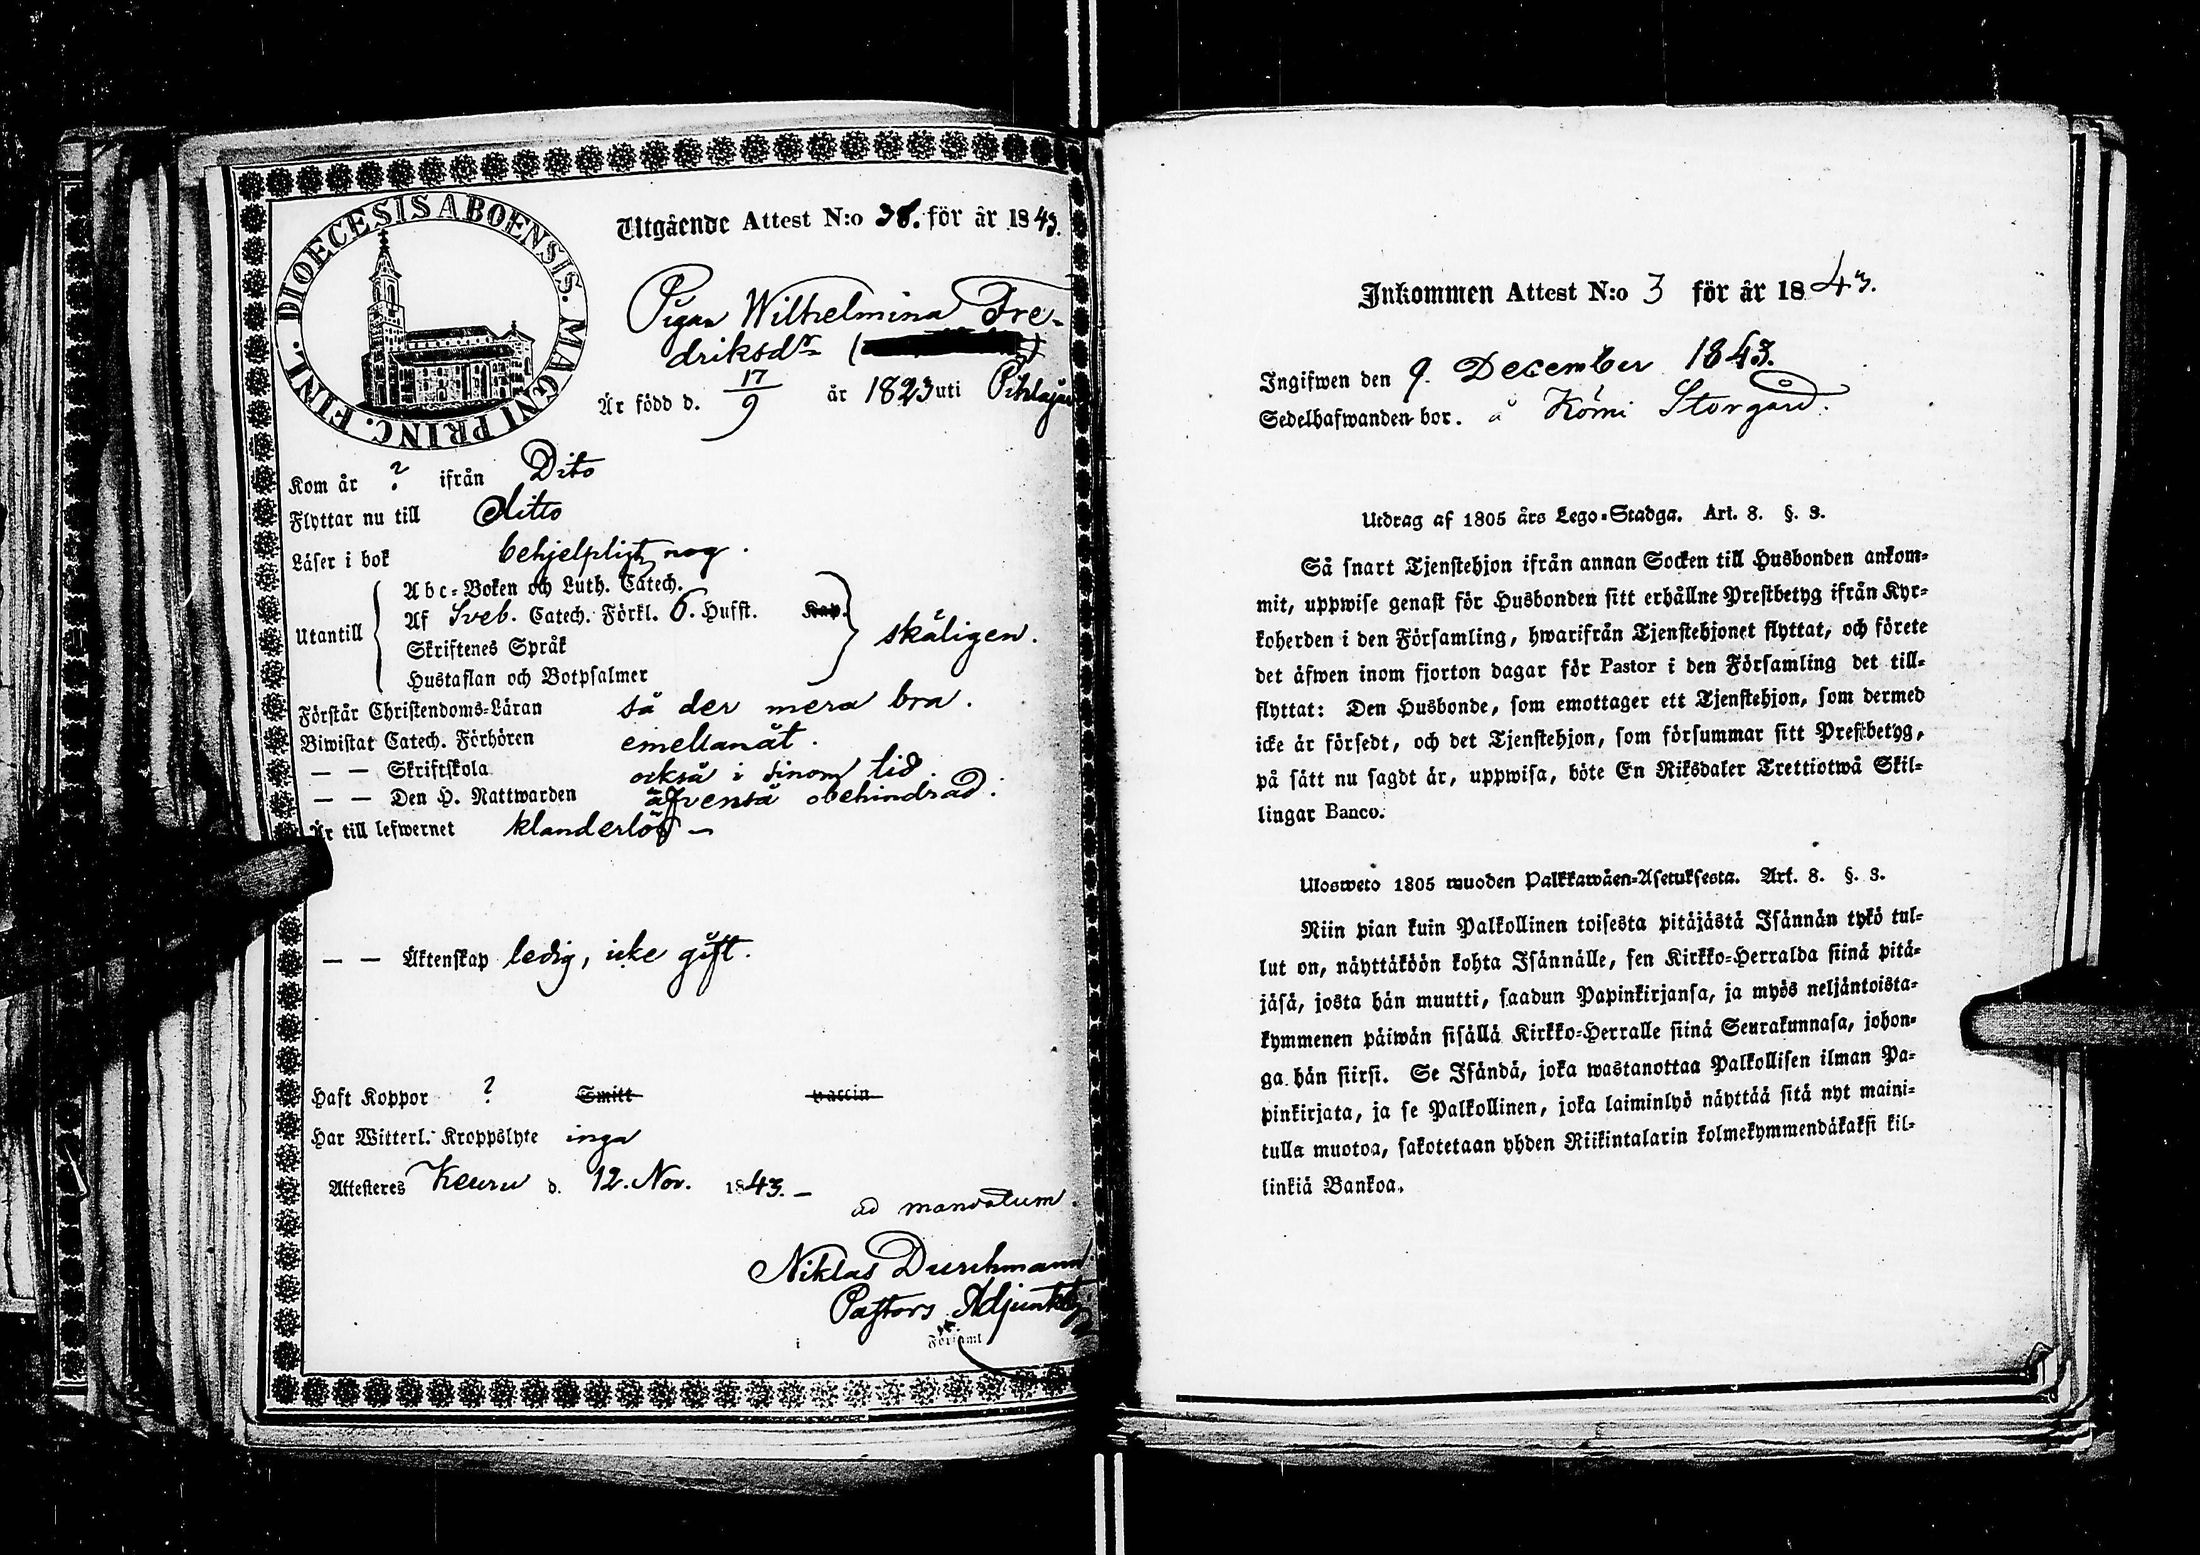 DIOECESIS ABOENSIS. MAGNI PRINC. FINL.
Utgående Attest N:o 38. för år 1843.
Pigan Wilhelmina Fre-
driksdr
Är född d. 17/9 år 1823 uti
Kom år ? ifrån Dito
Flyttar nu till ditto
Läser i bok behjelpligt nog.
Utantill
Abc-Boken och Luth. Catech.
Af Sveb. Catech. Förkl. 6. Hufst. Kap.
Skriftenes Språk
Hustaflan och Botpsalmer
skäligen.
Förstår Christendoms-Läran så der mera bra.
Biwistat Catech. Förhören emellanåt.
— — Skriftskola också i sinom tid
— — Den H. Nattwarden äfvenså obehindrad.
Är till lefwernet klanderlös —
— — Äktenskap ledig, icke gift.
Haft Koppor ? Smitt vaccin
Har Witterl. Kroppslyte inga
Attesteres Keuru d. 12. Nov. 1843. —
ad mandatum.
Niklas Durchmann
Pastors Adjunkt
i Församl
Inkommen Attest N:o 3 för år 1843.
Ingifwen den 9. December 1843.
Sedelhafwanden bor. å Kömi Storgård.
Utdrag af 1805 års Lego-Stadga. Art. 8. §. 3.
Så snart Tjenstehjon ifrån annan Socken till Husbonden ankom-
mit, uppwise genast för Husbonden sitt erhållne Prestbetyg ifrån Kyr-
koherden i den Församling, hwarifrån Tjenstehjonet flyttat, och förete
det äfwen inom fjorton dagar för Pastor i den Församling det till-
flyttat: Den Husbonde, som emottager ett Tjenstehjon, som dermed
icke är försedt, och det Tjenstehjon, som försummar sitt Prestbetyg,
på sätt nu sagdt är, uppwisa, böte En Riksdaler Trettiotwå Skil-
lingar Banco.
Ulosweto 1805 wuoden Palkkawäen-Asetuksesta. Art. 8. §. 3.
Niin pian kuin Palkollinen toisesta pitäjästä Isännän tykö tul-
lut on, näyttäköön kohta Isännälle, sen Kirkko-Herralda siinä pitä-
jäsä, josta hän muutti, saadun Papinkirjansa, ja myös neljäntoista-
kymmenen päiwän sisällä Kirkko-Herralle siinä Seurakunnasa, johon-
ga hän siirsi. Se Isändä, joka wastanottaa Palkollisen ilman Pa-
pinkirjata, ja se Palkollinen, joka laiminlyö näyttää sitä nyt maini-
tulla muotoa, sakotetaan yhden Riikintalarin kolmekymmendäkaksi kil-
linkiä Bankoa.